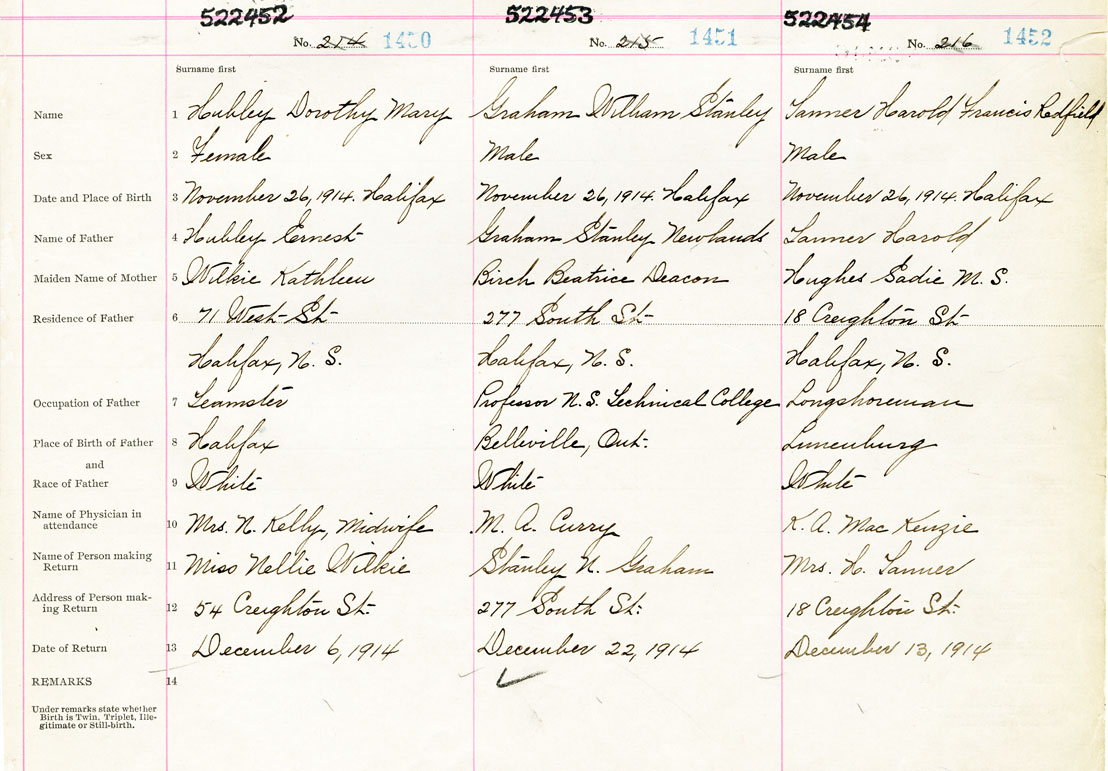 522452 522453 522454
No. 214 1450 No. 215 1451 No. 216 1452
Surname first Surname first Surname first
Name 1 Hubley Dorothy Mary Graham William Stanley Tanner Harold Francis Redfield
Sex 2 Female Male Male
Date and Place of Birth 3 November 26, 1914. Halifax November 26, 1914. Halifax November 26, 1914. Halifax
Name of Father 4 Hubley Ernest Graham Stanley Newlands Tanner Harold
Maiden Name of Mother 5 Wilkie Kathleen Birch Beatrice Deacon Hughes Sadie M. S.
Residence of Father 6 71 West St 277 South St 18 Creighton St
Halifax, N. S. Halifax, N. S. Halifax, N. S.
Occupation of Father 7 Teamster Professor N.S. Technical College Longshoreman
Place of Birth of Father 8 Halifax Belleville, Ont. Lunenburg
and
Race of Father 9 White White White
Name of Physician in
attendance 10 Mrs. N. Kelly, Midwife M. A. Curry K. A. Mac Kenzie
Name of Person making
Return 11 Miss Nellie Wilkie Stanley N. Graham Mrs. H. Tanner
Address of Person mak-
ing Return 12 54 Creighton St 277 South St. 18 Creighton St.
Date of Return 13 December 6, 1914 December 22, 1914 December 13, 1914
REMARKS 14
Under remarks state whether
Birth is Twin, Triplet, Ille-
gitimate or Still-birth.